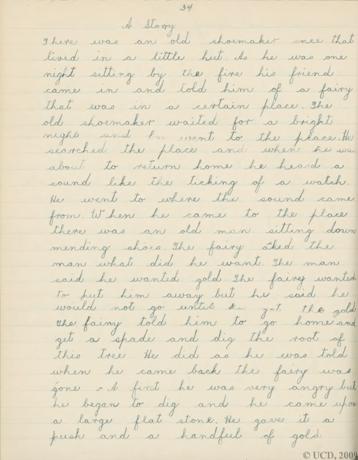 34
A Story
There was an old shoemaker once that
lived in a little hut. As he was one
night sitting by the fire his friend
came in and told him of a fairy
that was in a certain place. The
old shoemaker waited for a bright
night and he went to the place. He
searched the place and when he was
about to return home he heard a
sound like the ticking of a watch.
He went to where the sound came
from. When he came to the place
there was an old man sitting down
mending shoes. The fairy asked the
man what did he want. The man
said he wanted gold. The fairy wanted
to put him away but he said he
would not go until he got the gold
The fairy told him to go home and
get a spade and dig the root of
this tree. He did as he was told
when he came back the fairy was
gone. At first he was very angry but
he began to dig and he came upon
a large flat stone. He gave it a
push and a handful of gold
© UCD, 2009